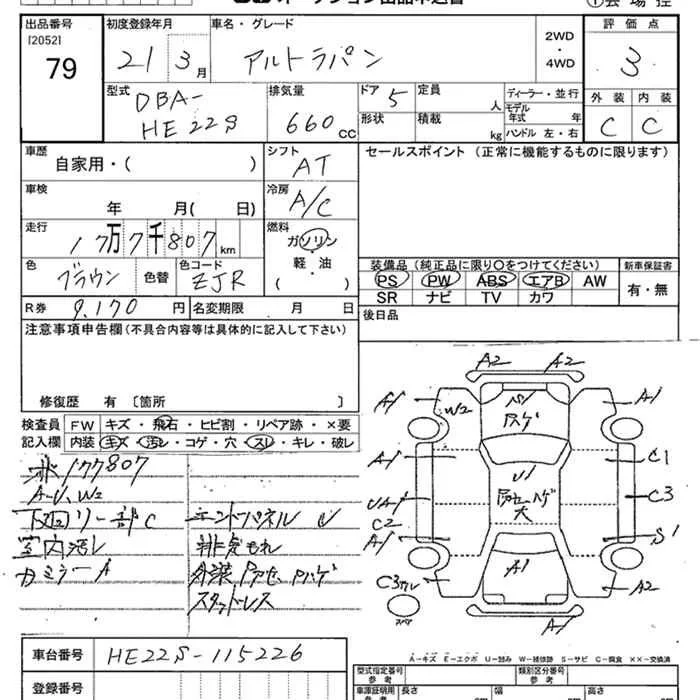 オークション出品申込書 ①会場控
出品番号 初度登録年月 車名・グレード 評価点
[2052] 79 21 3月 アルトラパン 2WD・4WD 3
型式 排気量 ドア 定員 ディーラー・並行 外装 内装
DBA- 5 人 モデル年式 年
HE22S 660cc 形状 積載 kg ハンドル 左・右 C C
車歴 シフト セールスポイント (正常に機能するものに限ります)
自家用・( ) AT
車検 冷房
年 月( 日) A/C
走行 燃料
17万7千807km ガソリン
軽・油
( )
色 色替 色コード 装備品(純正品に限り○をつけてください) 新車保証書
ブラウン ZJR PS PW ABS エアB AW 有・無
SR ナビ TV カワ
R券 9,170円 名変期限 月 日 後日品
注意事項申告欄(不具合内容等は具体的に記入して下さい)
修復歴 有 [箇所 ]
検査員記入欄 FW キズ・飛石・ヒビ割・リペア跡・×要
内装 キズ・汚レ・コゲ・穴・スレ・キレ・破レ
177807
A・U、W2
下回リ一部C エンドパネルU
室内汚レ 排気もれ
カミラーA
スタッドレス
A2 A2
A1 W2 A1
A1 U1 C1
UA1 C3
C2
A1 大 S1
C3 A1 A2
スペア A1
A-キズ E-エクボ U-凹み W-補修跡 S-サビ C-腐食 ××-交換済
車台番号 HE22S-115226 型式指定番号 参考 類別区分番号 参考
登録番号 車庫証明用 参考 長さ 幅 高さ